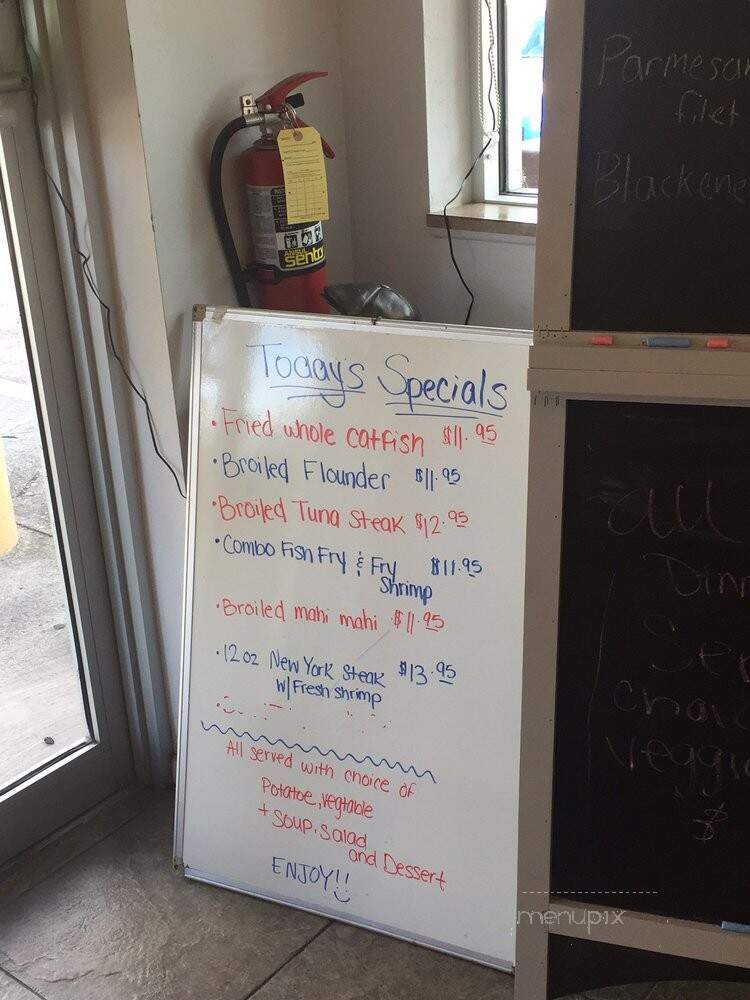 Parmesa
filet
Blackene
ANSUL
Sentry
Today's Specials
• Fried whole catfish $11.95
• Broiled Flounder $11.95
• Broiled Tuna Steak $12.95
• Combo Fish Fry & Fry $11.95
Shrimp
• Broiled mahi mahi $11.95
• 12oz New York Steak $13.95
w/Fresh shrimp
All served with choice of
Potatoe, vegtable
+ soup, salad
and Dessert
ENJOY!!
all
Dinn
Se
choic
Veggi
$
menupix